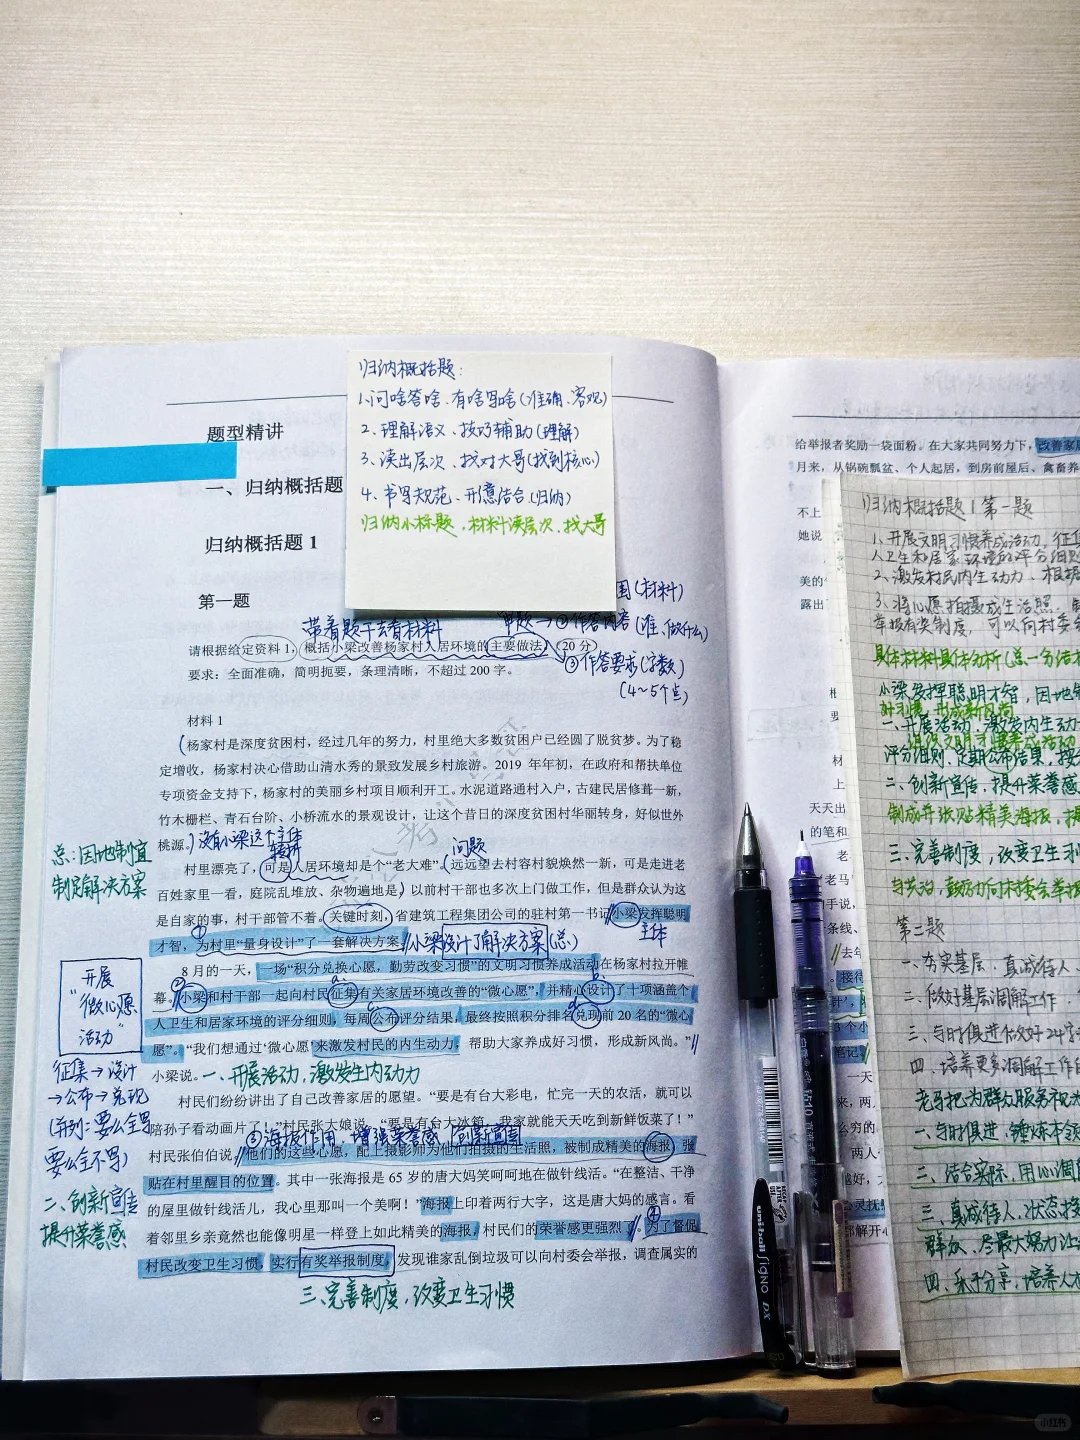 归纳概括题:
1、问啥答啥、有啥写啥(准确、客观)
2、理解语义、技巧辅助(理解)
3、读出层次、找对大哥(找到核心)
4、书写规范、形意结合(归纳)
归纳小标题,材料读层次、找大哥
题型精讲
一、归纳概括题
归纳概括题 1
第一题
(材料)
带着题干去看材料
审题→②作答内容(谁、做什么)
请根据给定资料 1,概括小梁改善杨家村人居环境的主要做法。(20 分)
要求:全面准确,简明扼要,条理清晰,不超过 200 字。
③作答要求(字数)
(4~5个点)
材料 1
杨家村是深度贫困村,经过几年的努力,村里绝大多数贫困户已经圆了脱贫梦。为了稳
定增收,杨家村决心借助山清水秀的景致发展乡村旅游。2019 年年初,在政府和帮扶单位
专项资金支持下,杨家村的美丽乡村项目顺利开工。水泥道路通村入户,古建民居修葺一新,
竹木栅栏、青石台阶、小桥流水的景观设计,让这个昔日的深度贫困村华丽转身,好似世外
桃源。)没有小梁这个主体
转折
问题
村里漂亮了,可是人居环境却是个“老大难”。远远望去村容村貌焕然一新,可是走进老
百姓家里一看,庭院乱堆放、杂物遍地是)以前村干部也多次上门做工作,但是群众认为这
是自家的事,村干部管不着。关键时刻,省建筑工程集团公司的驻村第一书记小梁发挥聪明
主体
才智,为村里“量身设计”了一套解决方案。//小梁设计了解决方案(总)
总:因地制宜
制定解决方案
8 月的一天,一场“积分兑换心愿,勤劳改变习惯”的文明习惯养成活动在杨家村拉开帷
幕。小梁和村干部一起向村民征集有关家居环境改善的“微心愿”,并精心设计了十项涵盖个
人卫生和居家环境的评分细则,每周公布评分结果,最终按照积分排名兑现前 20 名的“微心
愿”。“我们想通过‘微心愿’来激发村民的内生动力,帮助大家养成好习惯,形成新风尚。”//
小梁说。一、开展活动,激发生内动力
开展
“微心愿
活动”
征集→设计
→公布→兑现
(并列:要么全写
要么全不写)
村民们纷纷讲出了自己改善家居的愿望。“要是有台大彩电,忙完一天的农活,就可以
陪孙子看动画片了!”村民张大娘说。“要是有台大冰箱,我家就能天天吃到新鲜饭菜了!”
③海报作用,增强荣誉感 创新宣传
村民张伯伯说。//他们的这些心愿,配上摄影师为他们拍摄的生活照,被制成精美的海报,张
贴在村里醒目的位置。其中一张海报是 65 岁的唐大妈笑呵呵地在做针线活。“在整洁、干净
的屋里做针线活儿,我心里那叫一个美啊!”海报上印着两行大字,这是唐大妈的感言。看
着邻里乡亲竟然也能像明星一样登上如此精美的海报,村民们的荣誉感更强烈了//。为了督促
村民改变卫生习惯,实行有奖举报制度,发现谁家乱倒垃圾可以向村委会举报,调查属实的
二、创新宣传
提升荣誉感
三、完善制度,改变卫生习惯
给举报者奖励一袋面粉。在大家共同努力下,改善家居
月来,从锅碗瓢盆、个人起居,到房前屋后、禽畜养
不上
她说
美的
露出
天天出
的笔和
归纳概括题1第一题
1、开展文明习惯养成活动,征集
人卫生和居家环境的评分细则
2、激发村民内生动力、根据
3、将心愿拍摄成生活照,
举报有奖制度,可以向村委会
具体材料具体分析(总—分结
小梁发挥聪明才智,因地
一、开展活动,激发内生动
评分细则、定期公布结果,按
二、创新宣传,提升荣誉感
制成并张贴精美海报,提
三、完善制度,改变卫生习
第二题
一、夯实基层、真诚待人、
二、做好基层调解工作、
三、与时俱进做好24字
四、培养更多调解工作
老马把为群众服务视为
一、与时俱进,锤炼本领
二、结合实际,用心调
三、真诚待人,
群众、尽最大努力让
四、乐于分享,培养人才
uni-ball SIGNO DX
小红书